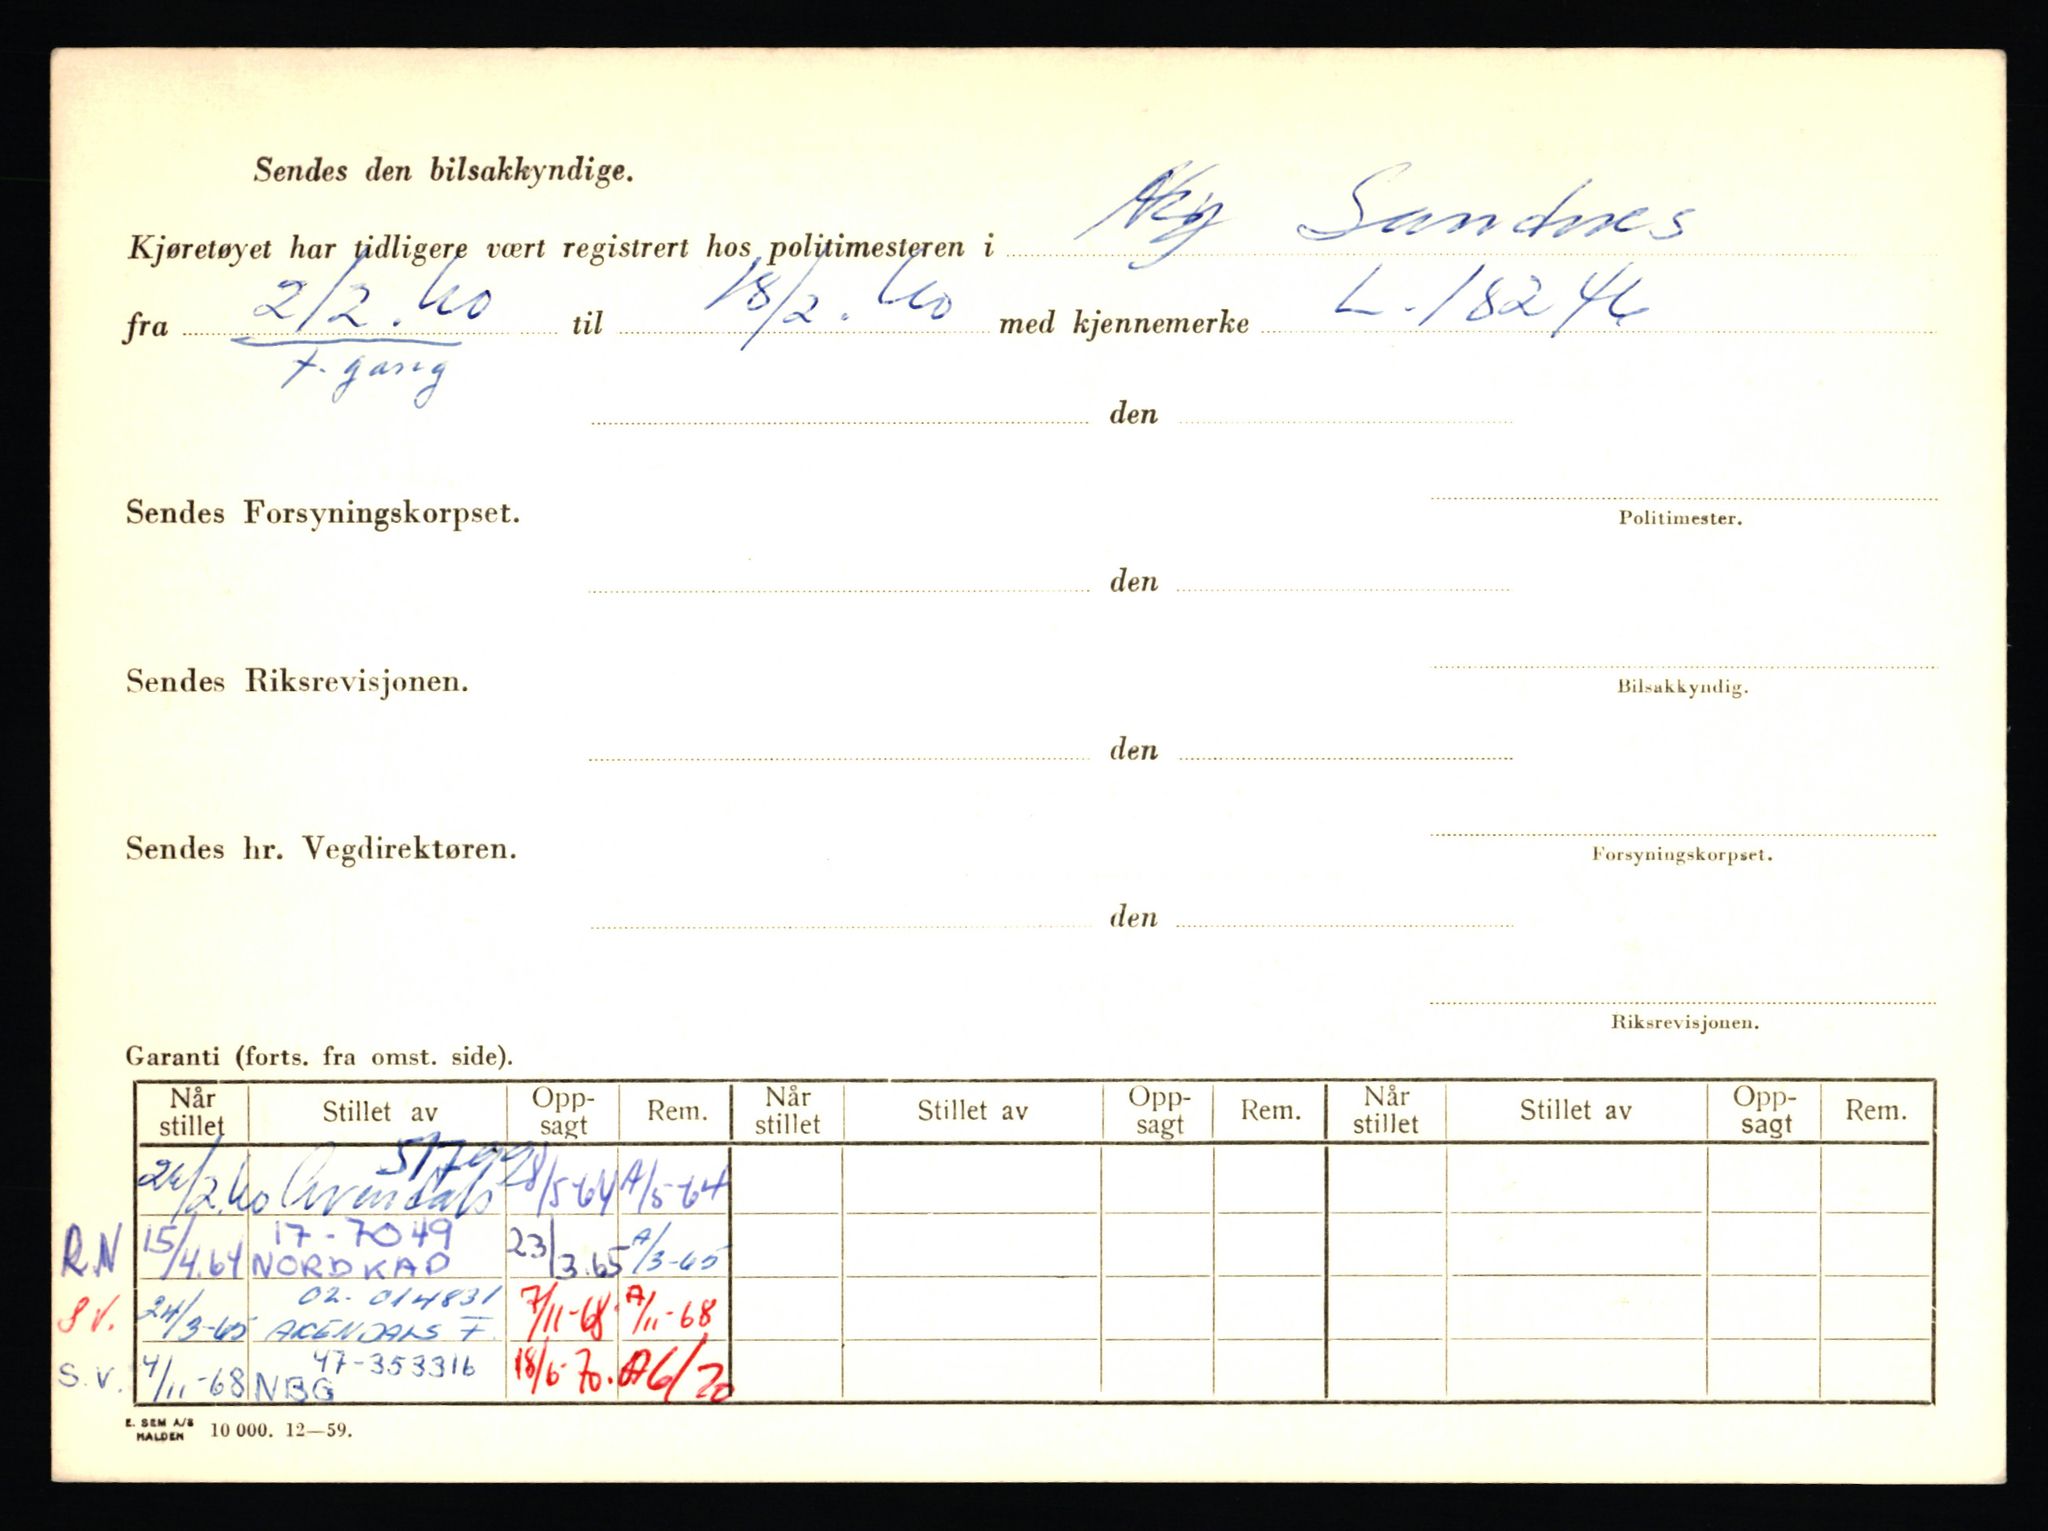 Sendes den bilsakkyndige.
Kjøretøyet har tidligere vært registrert hos politimesteren i Ny Sandnes
fra 2/2.60 til 18/2.60 med kjennemerke L-18246
1. gang
den
Sendes Forsyningskorpset.
Politimester.
den
Sendes Riksrevisjonen.
Bilsakkyndig.
den
Sendes hr. Vegdirektøren.
Forsyningskorpset.
den
Riksrevisjonen.
Garanti (forts. fra omst. side).
Når stillet Stillet av Opp-sagt Rem. Når stillet Stillet av Opp-sagt Rem. Når stillet Stillet av Opp-sagt Rem.
51799
24/2.60 Arendals 8/5-64 A/5-64
17-7049
R.N 15/4.64 NORDKAP 23/3.65 A/3-65
02-014831
S.V. 24/3-65 ARENDALS F. 7/11-68 A/11-68
47-353316
S.V. 4/11-68 NBG 18/6-70. A6/70
E. SEM A/S
HALDEN 10 000. 12—59.